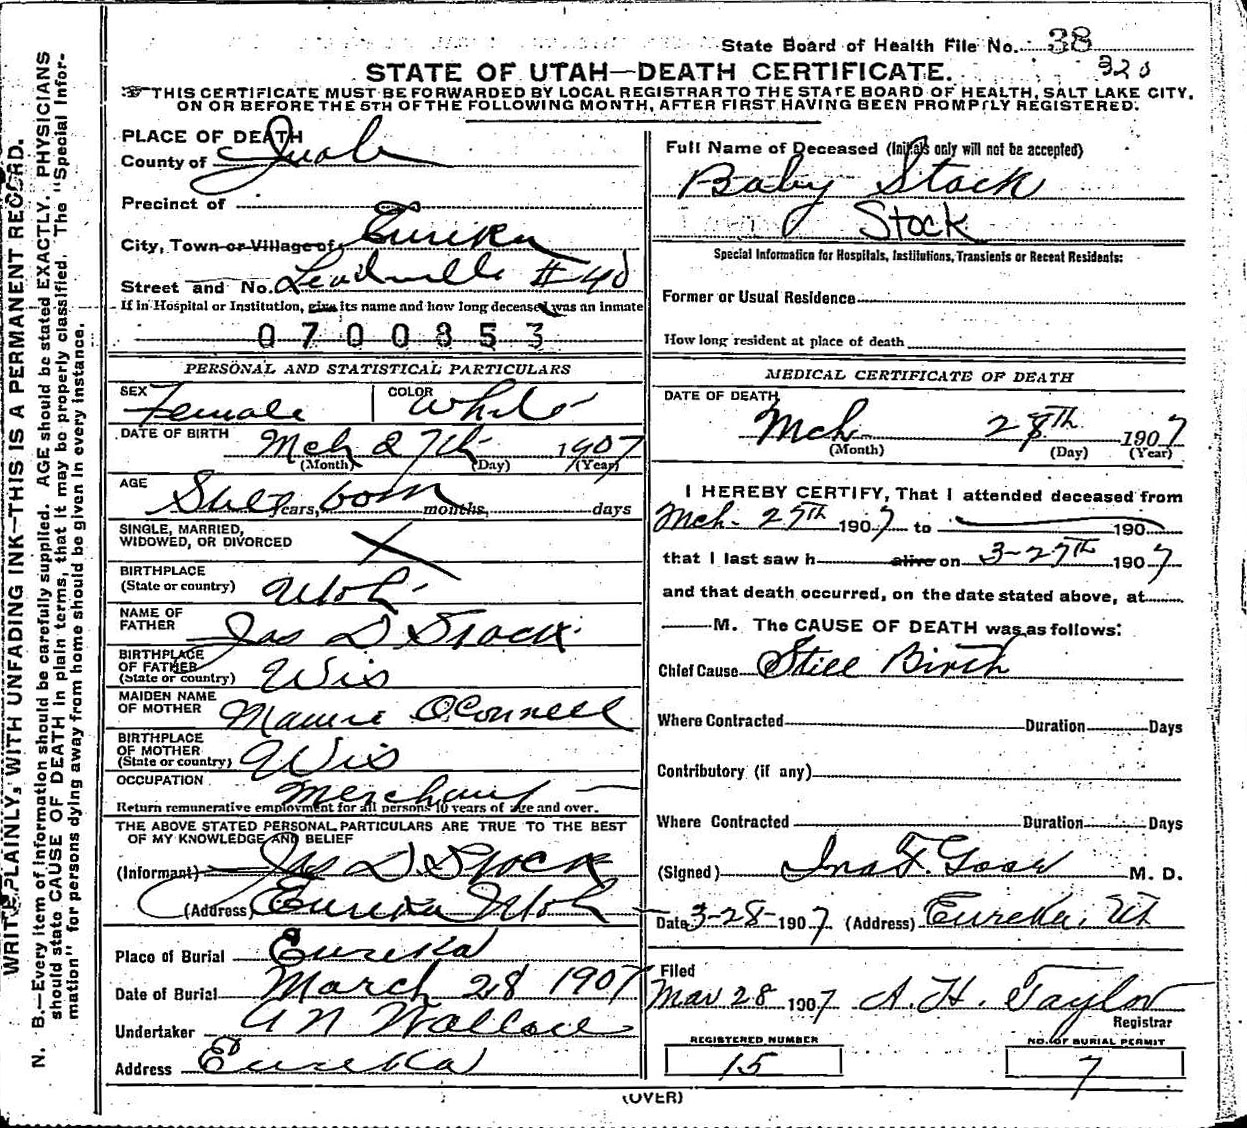 State Board of Health File No. 38
320
STATE OF UTAH—DEATH CERTIFICATE.
THIS CERTIFICATE MUST BE FORWARDED BY LOCAL REGISTRAR TO THE STATE BOARD OF HEALTH, SALT LAKE CITY,
ON OR BEFORE THE 5TH OF THE FOLLOWING MONTH, AFTER FIRST HAVING BEEN PROMPTLY REGISTERED.
WRITE PLAINLY, WITH UNFADING INK—THIS IS A PERMANENT RECORD.
N. B.—Every item of information should be carefully supplied. AGE should be stated EXACTLY. PHYSICIANS
should state CAUSE OF DEATH in plain terms, that it may be properly classified. The "Special Infor-
mation" for persons dying away from home should be given in every instance.
PLACE OF DEATH
County of Juab
Precinct of
City, Town or Village of Eureka
Street and No. Leadville #40
If in Hospital or Institution, give its name and how long deceased was an inmate
0700853
PERSONAL AND STATISTICAL PARTICULARS
SEX Female COLOR White
DATE OF BIRTH Mch 27th 1907
(Month) (Day) (Year)
AGE Still born years, months, days
SINGLE, MARRIED,
WIDOWED, OR DIVORCED X
BIRTHPLACE
(State or country) Utah
NAME OF
FATHER Jas D Stock
BIRTHPLACE
OF FATHER
(State or country) Wis
MAIDEN NAME
OF MOTHER Mamie O'Connell
BIRTHPLACE
OF MOTHER
(State or country) Wis
OCCUPATION Merchant
Return remunerative employment for all persons 10 years of age and over.
THE ABOVE STATED PERSONAL PARTICULARS ARE TRUE TO THE BEST
OF MY KNOWLEDGE AND BELIEF
(Informant) Jas D. Stock
(Address) Eureka Utah
Place of Burial Eureka
Date of Burial March 28 1907
Undertaker A N Wallace
Address Eureka
Full Name of Deceased (Initials only will not be accepted)
Baby Stock
Stock
Special Information for Hospitals, Institutions, Transients or Recent Residents:
Former or Usual Residence
How long resident at place of death
MEDICAL CERTIFICATE OF DEATH
DATE OF DEATH
Mch 28th 1907
(Month) (Day) (Year)
I HEREBY CERTIFY, That I attended deceased from
Mch. 27th 1907 to 190
that I last saw h alive on 3-27th 1907
and that death occurred, on the date stated above, at
M. The CAUSE OF DEATH was as follows:
Chief Cause Still Birth
Where Contracted Duration Days
Contributory (if any)
Where Contracted Duration Days
(Signed) M. D.
Date 3-28-1907 (Address) Eureka, Ut
Filed
Mar 28 1907 A. H. Taylor
Registrar
REGISTERED NUMBER
15
NO. OF BURIAL PERMIT
7
(OVER)